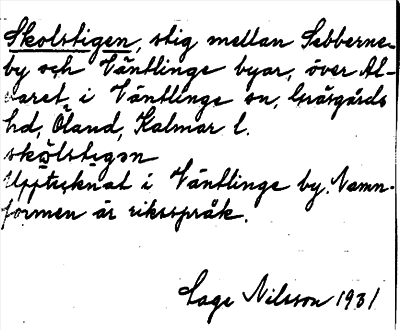 Skolstigen, stig mellan Sebberne-
by och Väntlinge byar, över Al-
varet i Väntlinge sn, Gräsgårds
hd, Öland, Kalmar l.
skolstigen
Upptecknat i Väntlinge by. Namn-
formen är riksspråk.
Lage Nilsson 1931